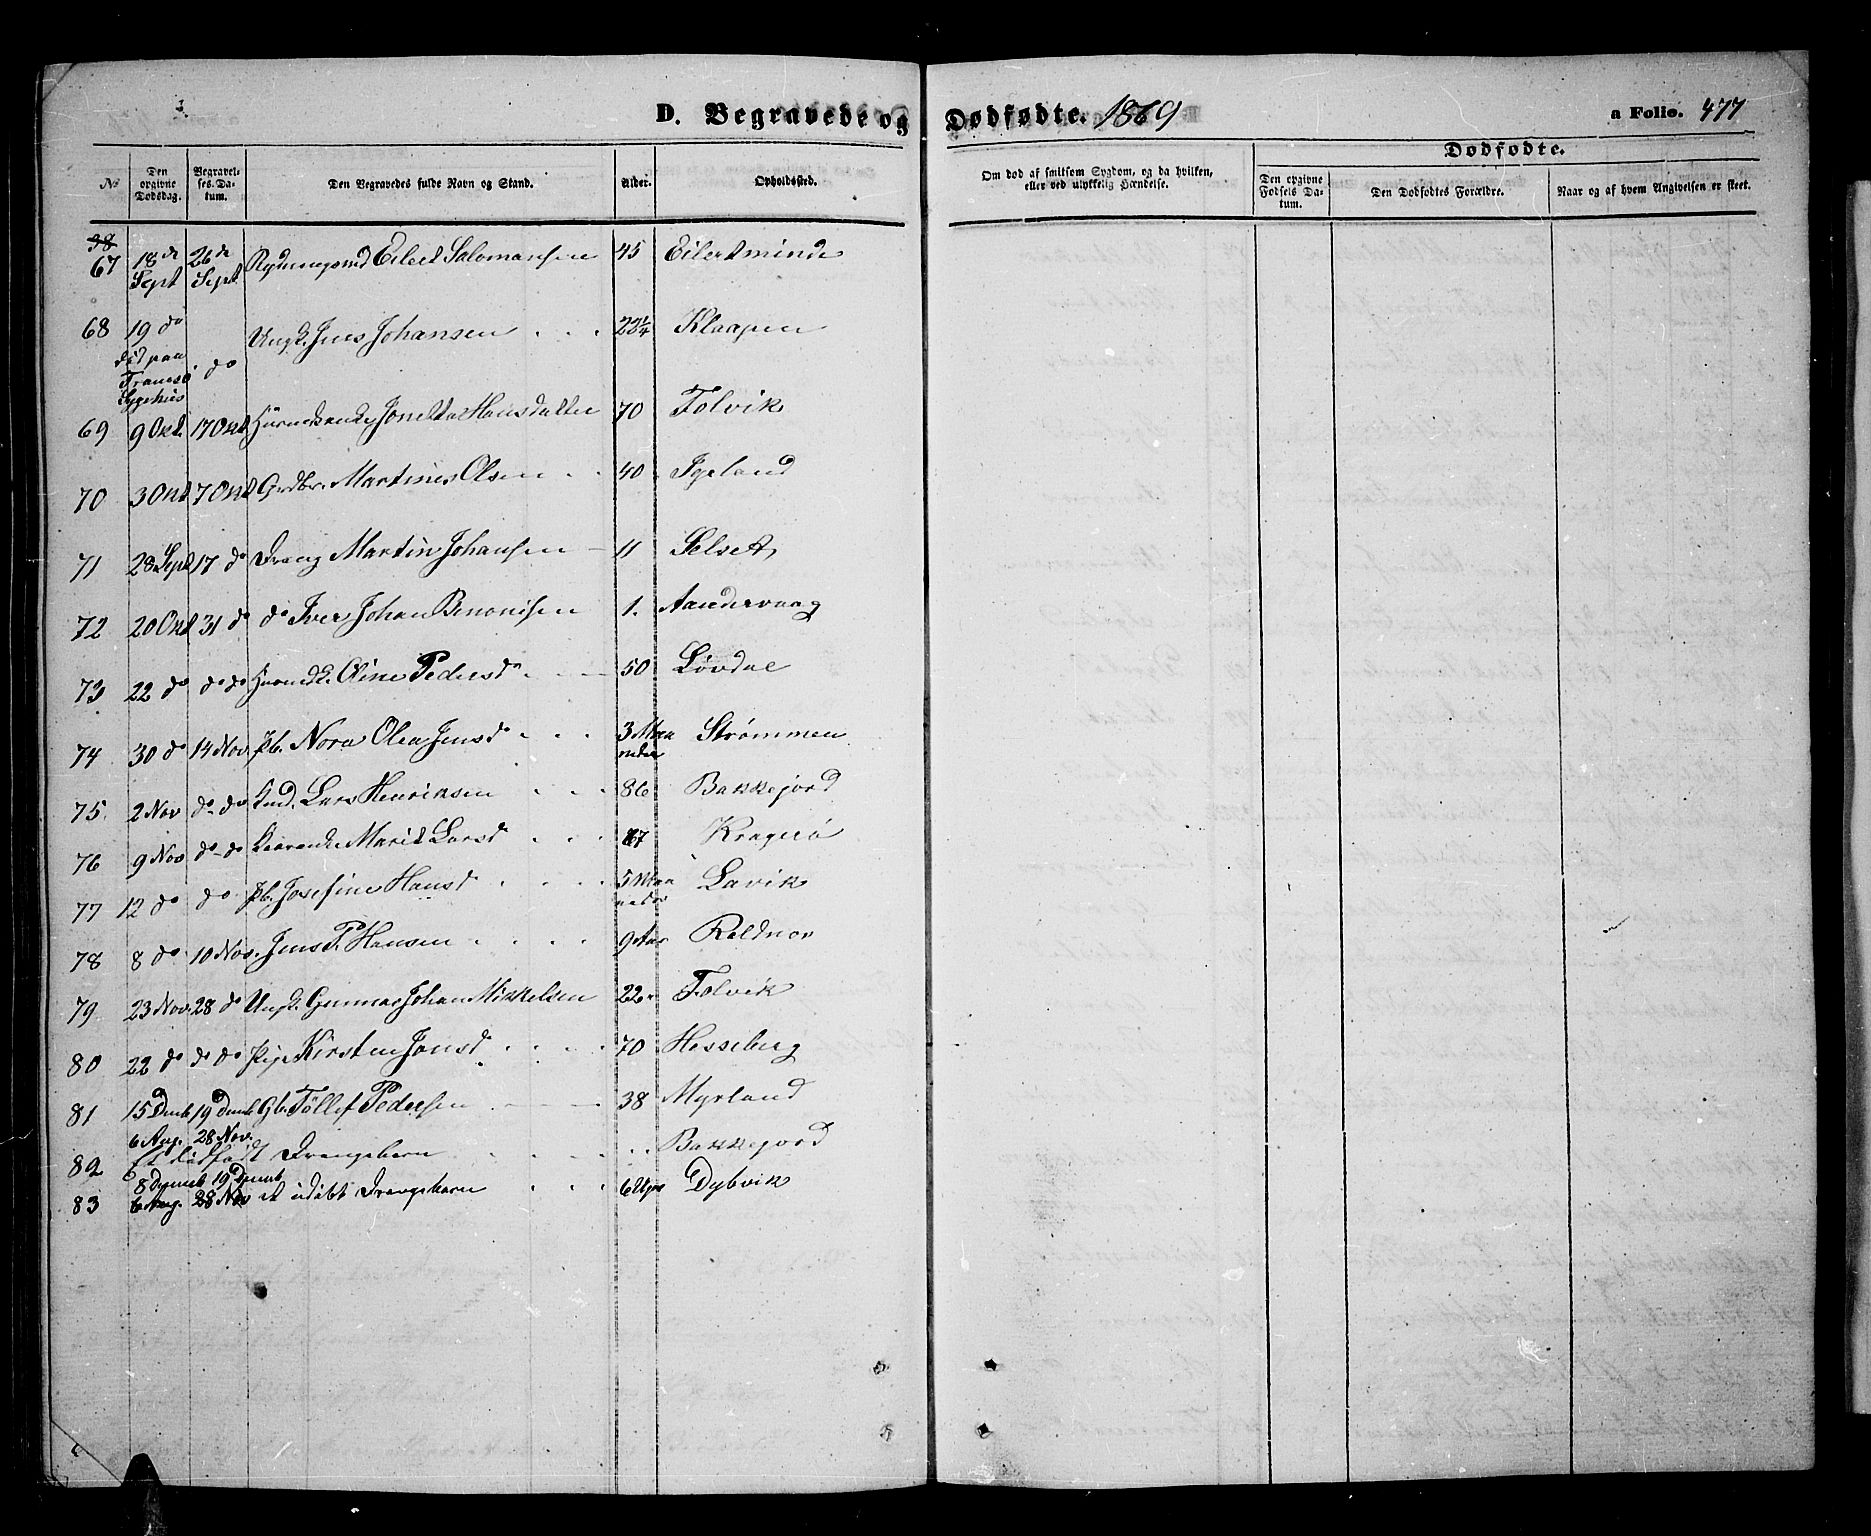 D. Begravede og Dødfødte. 1869
a Folio. 477
No
Den opgivne Dødsdag.
Begravelses-Datum.
Den Begravedes fulde Navn og Stand.
Alder.
Opholdssted.
Om død af smitsom Sygdom, og da hvilken, eller ved ulykkelig Hændelse.
Dødfødte.
Den opgivne Fødsels Datum.
Den Dødfødtes Forældre.
Naar og af hvem Angivelsen er skeet.
67 18de Sept 26de Sept Eilert Salomonsen 45 Eilertminde
68 19 do død paa Tranesö Sygehus do Ungk. Jens Johansen 22¼ Klaapen
69 9 Okt. 17 Okt. Hansdatter 70 Tolvik
70 3 Okt 7 Okt Grdbr. Martines Olsen 40 Igeland
71 28 Sept 17 do Dreng Martin Johansen 11 Selset
72 20 Okt 31 do do Iver Johan Benonisen 1. Aandervaag
73 22 do do do Oline Pedersd 50 Løvdal
74 30 do 14 Nov. pb. Nora Olea Jensd 3 Maaneder Strømmen
75. 2 Nov do do Lars Henriksen 86 Bakkejord
76 9 Nov do do Marit Larsd 67 Kragerö
77 12 do do pb. Josefine Hansd 5 Maaneder Lavik
78 8 do 10 Nov. Jens P. Hansen 9 Aar Reldnor
79 23 Nov. 28 do Ungk. Gunnar Johan Mikkelsen 22 Tolvik
80 22 do do do Pige Kirsten Jonsd 70 Hesseberg
81 15 Demb 19 Demb Gb. Töllef Pedersen 38 Myrland
6 Aug. 28 Nov.
82 Et dödfödt Drengebarn Bakkejord
8 Dcmb 19 Dcmb
83 6 Aug. 28 Nov et udöbt Drengebarn 6 Uger Dybvik